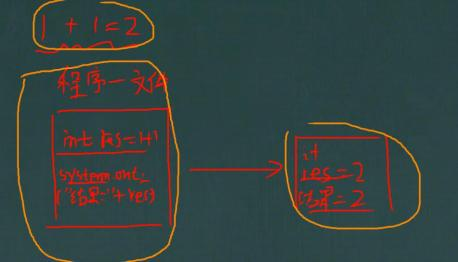 1 + 1 = 2
程序—文件
int res=1+1
system.out.
("结果:"+res)
it
res=2
结果=2